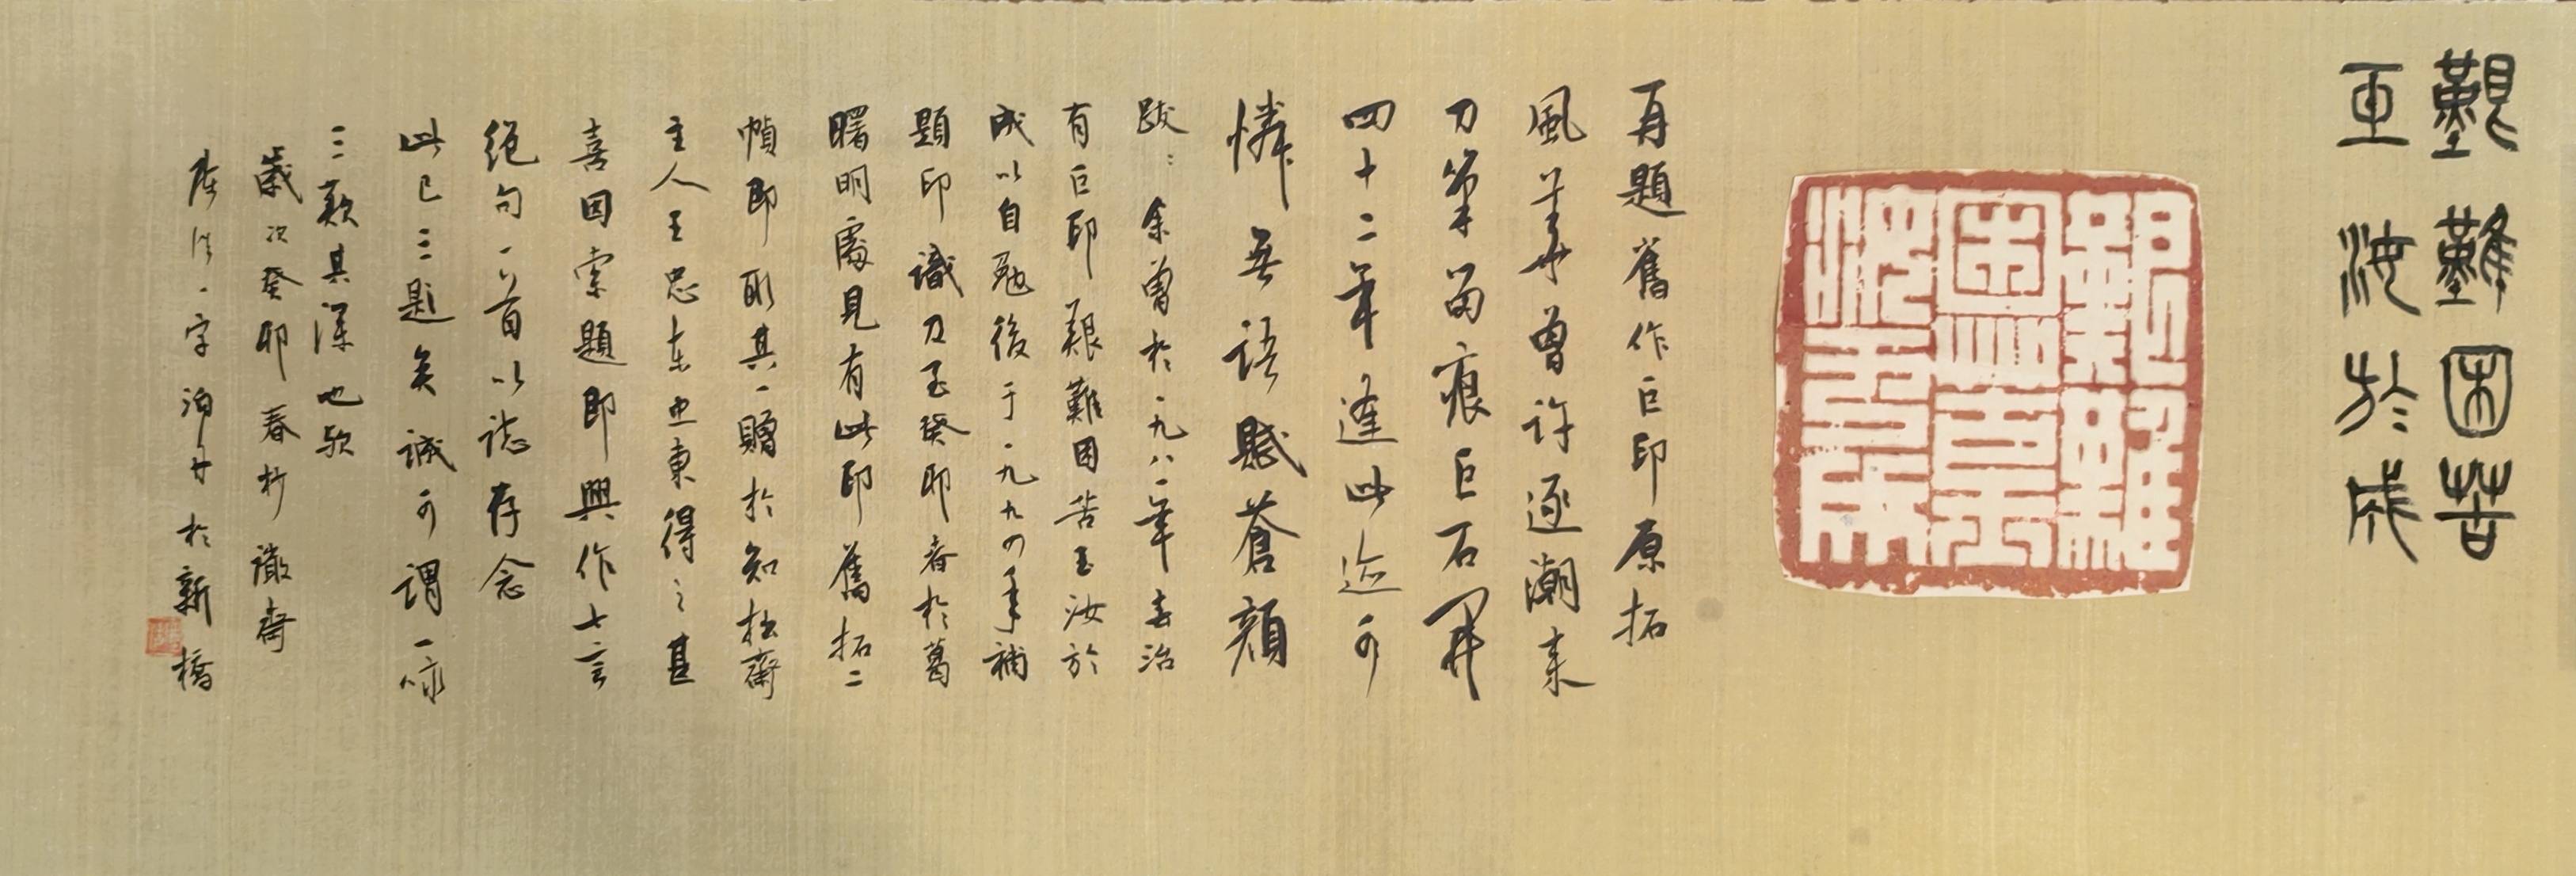 艱難困苦
玉汝於成
艱難困苦玉汝於成
再題舊作巨印原拓
風華曾許逐潮來
刀筆留痕巨石開
四十二年逢此迹可
憐無語賦蒼顏
跋：余曾於一九八一年去治
有巨印艱難困苦玉汝於
成以自勉後于一九九四年補
題印識刀至癸卯春於葛
曙明處見有此印舊拓二
幀即取其一贈於知拙齋
主人王忠東忠東得之甚
喜因索題即興作七言
絕句一首以誌存念
此已三題矣誠可謂一詠
三歎其深也歟
歲次癸卯春杪澂齋
字泊舟於新橋